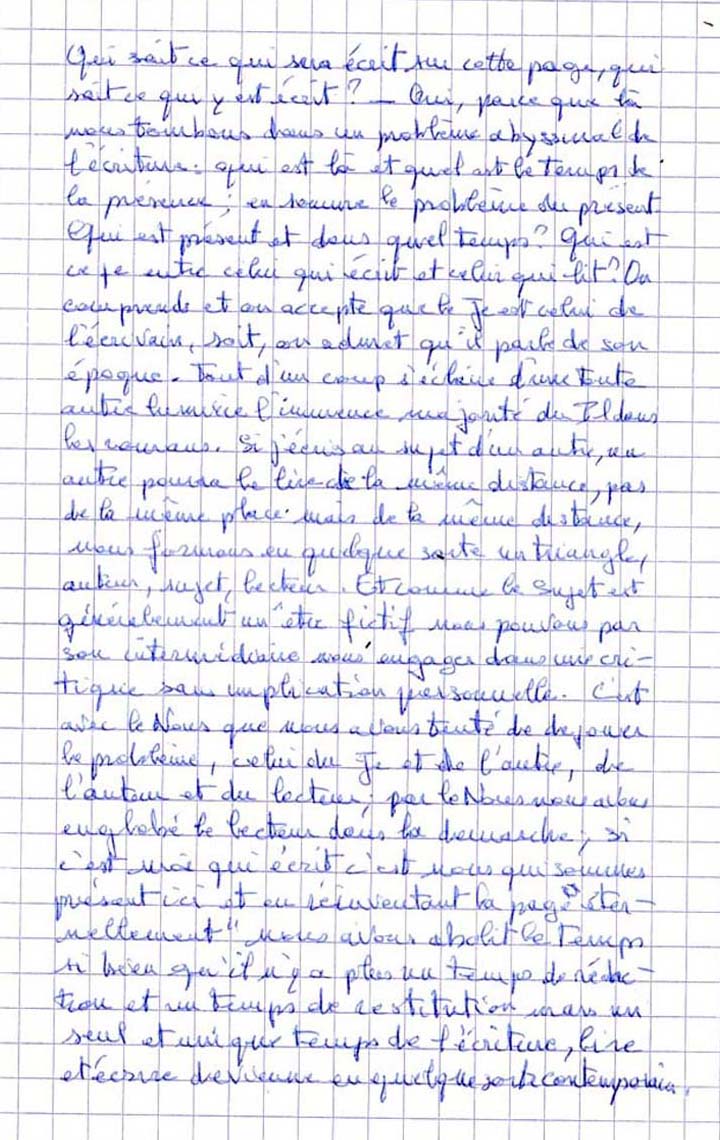 Qui sait ce qui sera écrit sur cette page, qui
sait ce qui y est écrit ? — Oui, parce que là
nous tombons dans un problème abyssinal de
l'écriture : qui est là et quel est le temps de
la présence ; en somme le problème du présent.
Qui est présent et dans quel temps ? Qui est
ce je entre celui qui écrit et celui qui lit ? On
comprends et on accepte que le Je est celui de
l'écrivain, soit, on admet qu'il parle de son
époque. Tout d'un coup s'éclaire d'une toute
autre lumière l'immence majorité du Il dans
les romans. Si j'écris au sujet d'un autre, un
autre pourra le lire de la même distance, pas
de la même place mais de la même distance,
nous formons en quelque sorte un triangle,
auteur, sujet, lecteur. Et comme le sujet est
généralement un être fictif nous pouvons par
son intermédiaire nous engager dans une cri-
tique sans implication personnelle. C'est
avec le Nous que nous avons tenté de dejouer
le problème, celui du Je et de l'autre, de
l'auteur et du lecteur ; par le Nous nous avons
englobé le lecteur dans la demarche ; si
c'est moi qui écrit c'est nous qui sommes
présent ici et en réinventant la page "éter-
nellement" nous avons abolit le Temps
si bien qu'il n'y a plus un temps de rédac-
tion et un temps de restitution mais un
seul et unique temps de l'écriture, lire
et écrire devienne en quelque sorte contemporain.